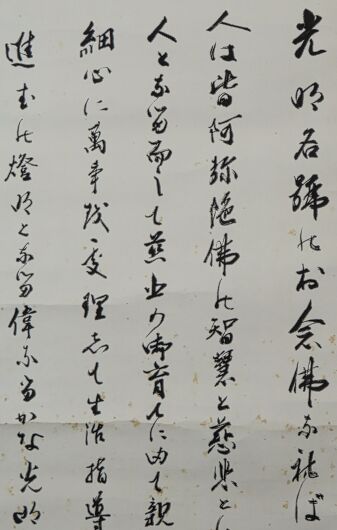 光明名號のお念佛なれば
人は皆阿弥陀佛の智慧と慈悲とし
人となる而して慈悲の御育てに由て親
細心に萬事を處理して生活指導
進むの燈明となる偉なるかな光明